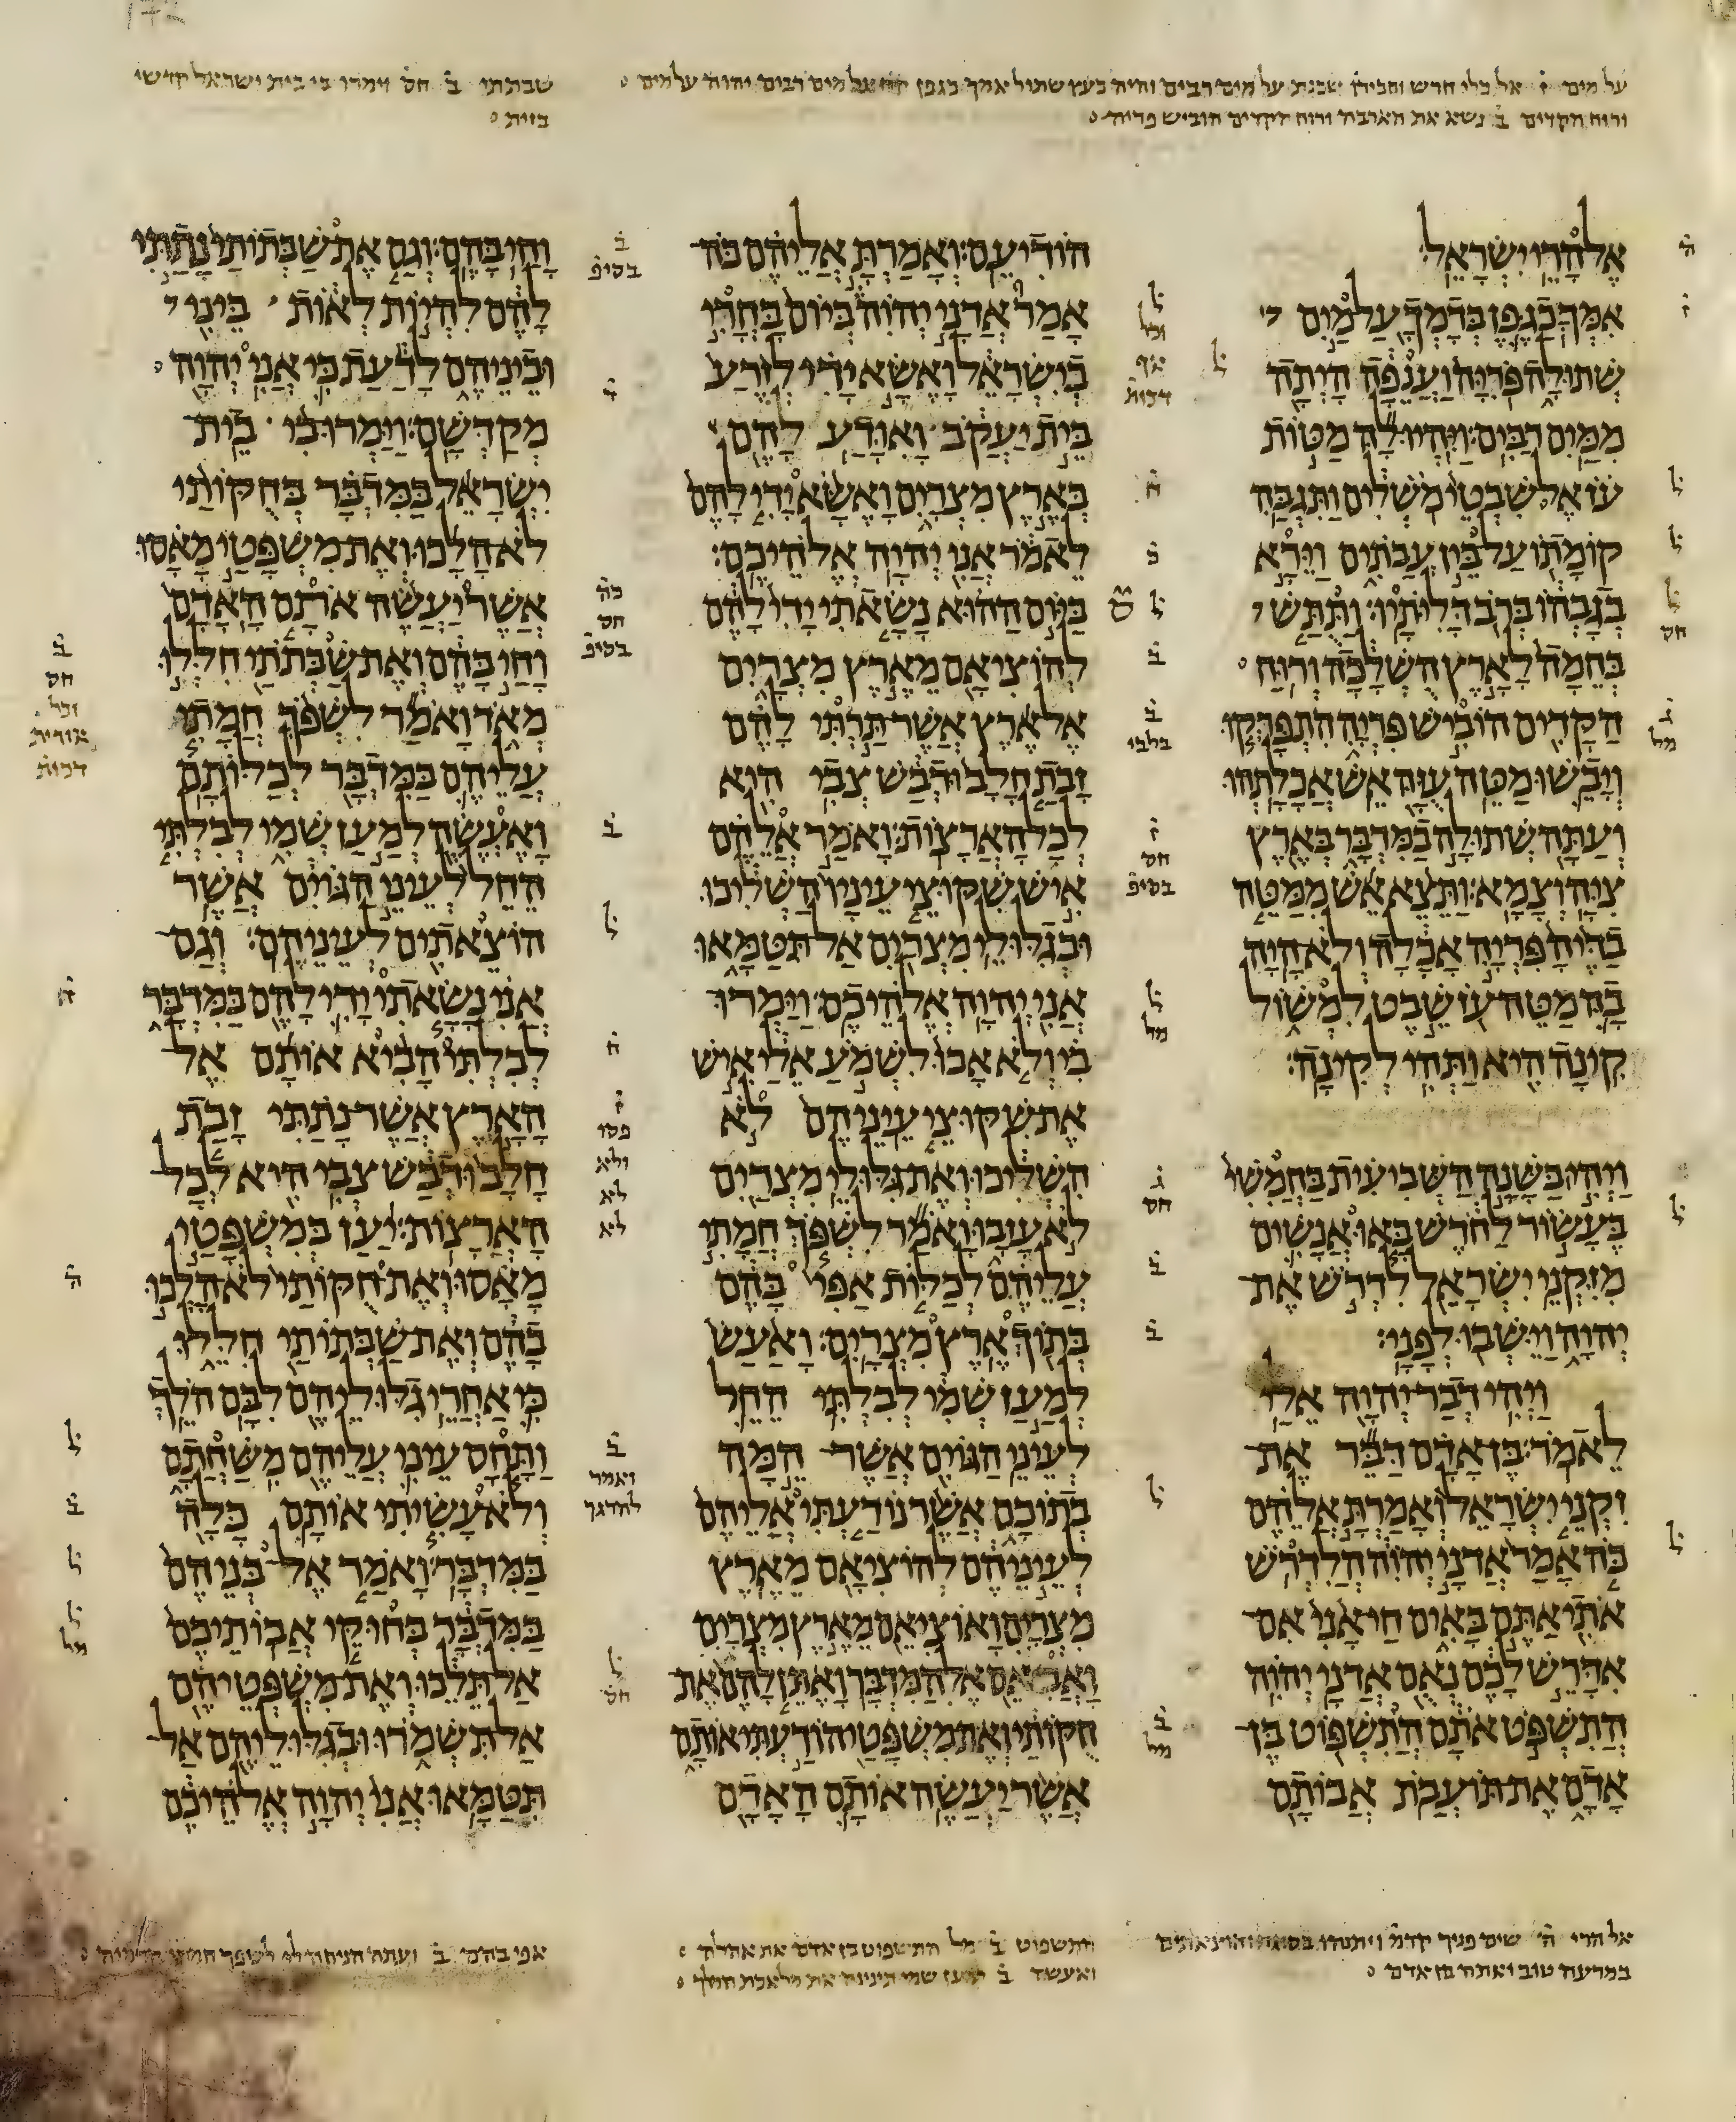 על מים ז אל כלי חרש וחבירו שכנת על מים רבים והיה כעץ שתול אמך כגפן אל מים רבים יהוה על מים
ורוח הקדים ב נשא את הארבה ורוח הקדים הוביש פריה
שבתתי ב חס וימרו בי בית ישראל חדשי
בזית
אל הרי ישראל׃
אמך כגפן בדמך על מים
שתולה פריה וענפה היתה
ממים רבים׃ ויהיו לה מטות
עז אל שבטי משלים ותגבה
קומתו על בין עבתים וירא
בגבהו ברב דליתיו׃ ותתש
בחמה לארץ השלכה ורוח
הקדים הוביש פריה התפרקו
ויבשו מטה עזה אש אכלתהו
ועתה שתולה במדבר בארץ
ציה וצמא׃ ותצא אש ממטה
בדיה פריה אכלה ולא היה
בה מטה עז שבט למשול
קינה היא ותהי לקינה׃
ויהי בשנה השביעית בחמשי
בעשור לחדש באו אנשים
מזקני ישראל לדרש את
יהוה וישבו לפני׃
ויהי דבר יהוה אלי
לאמר׃ בן אדם דבר את
זקני ישראל ואמרת אלהם
כה אמר אדני יהוה הלדרש
אתי אתם באים חי אני אם
אדרש לכם נאם אדני יהוה
התשפט אתם התשפוט בן
אדם את תועבת אבותם
הודיעם׃ ואמרת אליהם כה
אמר אדני יהוה ביום בחרי
בישראל ואשא ידי לזרע
בית יעקב ואודע להם
בארץ מצרים ואשא ידי להם
לאמר אני יהוה אלהיכם׃
ביום ההוא נשאתי ידי להם
להוציאם מארץ מצרים
אל ארץ אשר תרתי להם
זבת חלב ודבש צבי היא
לכל הארצות׃ ואמר אלהם
איש שקוצי עיניו השליכו
ובגלולי מצרים אל תטמאו
אני יהוה אלהיכם׃ וימרו
בי ולא אבו לשמע אלי איש
את שקוצי עיניהם לא
השליכו ואת גלולי מצרים
לא עזבו ואמר לשפך חמתי
עליהם לכלות אפי בהם
בתוך ארץ מצרים׃ ואעש
למען שמי לבלתי החל
לעיני הגוים אשר המה
בתוכם אשר נודעתי אליהם
לעיניהם להוציאם מארץ
מצרים׃ ואוציאם מארץ מצרים
ואבאם אל המדבר׃ ואתן להם את
חקותי ואת משפטי הודעתי אותם
אשר יעשה אותם האדם
וחי בהם׃ וגם את שבתותי נתתי
להם להיות לאות ביני
וביניהם לדעת כי אני יהוה
מקדשם׃ וימרו בי בית
ישראל במדבר בחקותי
לא הלכו ואת משפטי מאסו
אשר יעשה אתם האדם
וחי בהם ואת שבתתי חללו
מאד ואמר לשפך חמתי
עליהם במדבר לכלותם
ואעשה למען שמי לבלתי
החל לעיני הגוים אשר
הוצאתים לעיניהם׃ וגם
אני נשאתי ידי להם במדבר
לבלתי הביא אותם אל
הארץ אשר נתתי זבת
חלב ודבש צבי היא לכל
הארצות׃ יען במשפטי
מאסו ואת חקותי לא הלכו
בהם ואת שבתותי חללו
כי אחרי גלוליהם לבם הלך
ותחס עיני עליהם משחתם
ולא עשיתי אותם כלה
במדבר׃ ואמר אל בניהם
במדבר בחוקי אבותיכם
אל תלכו ואת משפטיהם
אל תשמרו ובגלוליהם אל
תטמאו׃ אני יהוה אלהיכם
אל הרי ה שים פניך
במרעה טוב ואתה בן אדם
התשפוט ב מל התשפוט בן אדם את אהלה
ואעשה ב למען שמי
אפי בהם ב ועתה הניחה לי לשפך חמתי